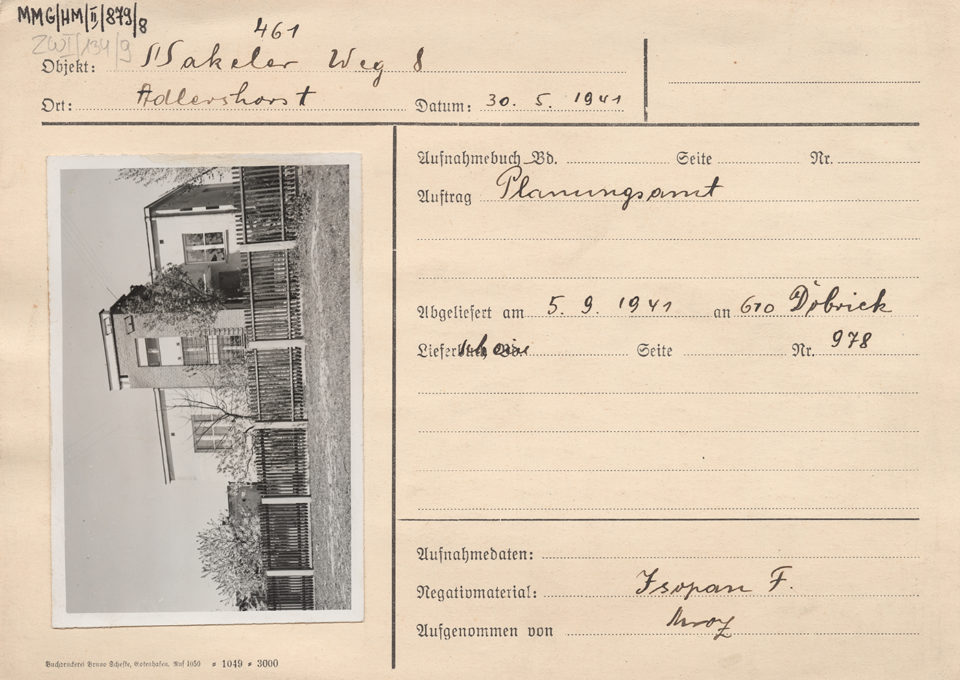 MMG/HM/II/879/8
ZWI/134/9
461
Objekt: Makeler Weg 8
Ort: Adlershorst Datum: 30. 5. 1941
Aufnahmebuch Bd. Seite Nr.
Auftrag Planungsamt
Abgeliefert am 5. 9. 1941 an Döbrick
Seite Nr. 978
Aufnahmedaten:
Negativmaterial: Isopan F.
Aufgenommen von Mroz
Buchdruckerei Bruno Scheffke, Gotenhafen. Ruf 1050 * 1049 * 3000